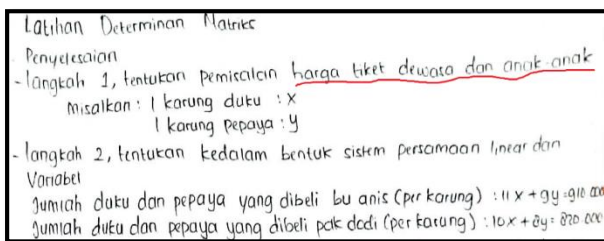 Latihan Determinan Matriks
Penyelesaian
- langkah 1, tentukan pemisalan harga tiket dewasa dan anak-anak
Misalkan : 1 karung duku : x
1 karung pepaya : y
- langkah 2, tentukan kedalam bentuk sistem persamaan linear dan
Variabel
Jumlah duku dan pepaya yang dibeli bu anis (per karung) : 11x + 9y = 910.000
Jumlah duku dan pepaya yang dibeli pak dodi (per karung) : 10x + 8y = 820.000